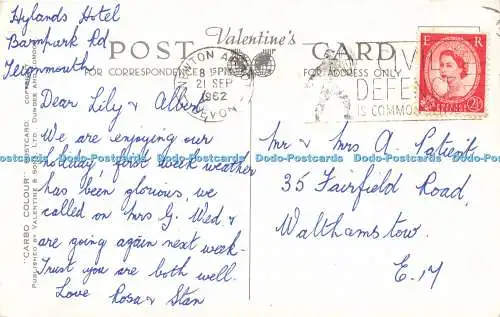 Hylands Hotel
Barnpark Rd
Teignmouth
POST Valentine's CARD
FOR CORRESPONDENCE
FOR ADDRESS ONLY
NEWTON
8 PM
21 SEP
1962
DEVON
DEFE
IS COMMON
E R
2½
Dear Lily & Albert
We are enjoying our
holiday, first week weather
has been glorious, we
called on Mrs G. Wed. &
are going again next week.
Trust you are both well.
Love Rosa & Stan
Mr & Mrs A. Patient
35 Fairfield Road,
Walthamstow.
E.17
"CARBO COLOUR" POSTCARD.
PUBLISHED BY VALENTINE & SONS, LTD. DUNDEE AND LONDON
Dodo-Postcards Dodo-Postcards Dodo-Postcards Dodo-Postcards